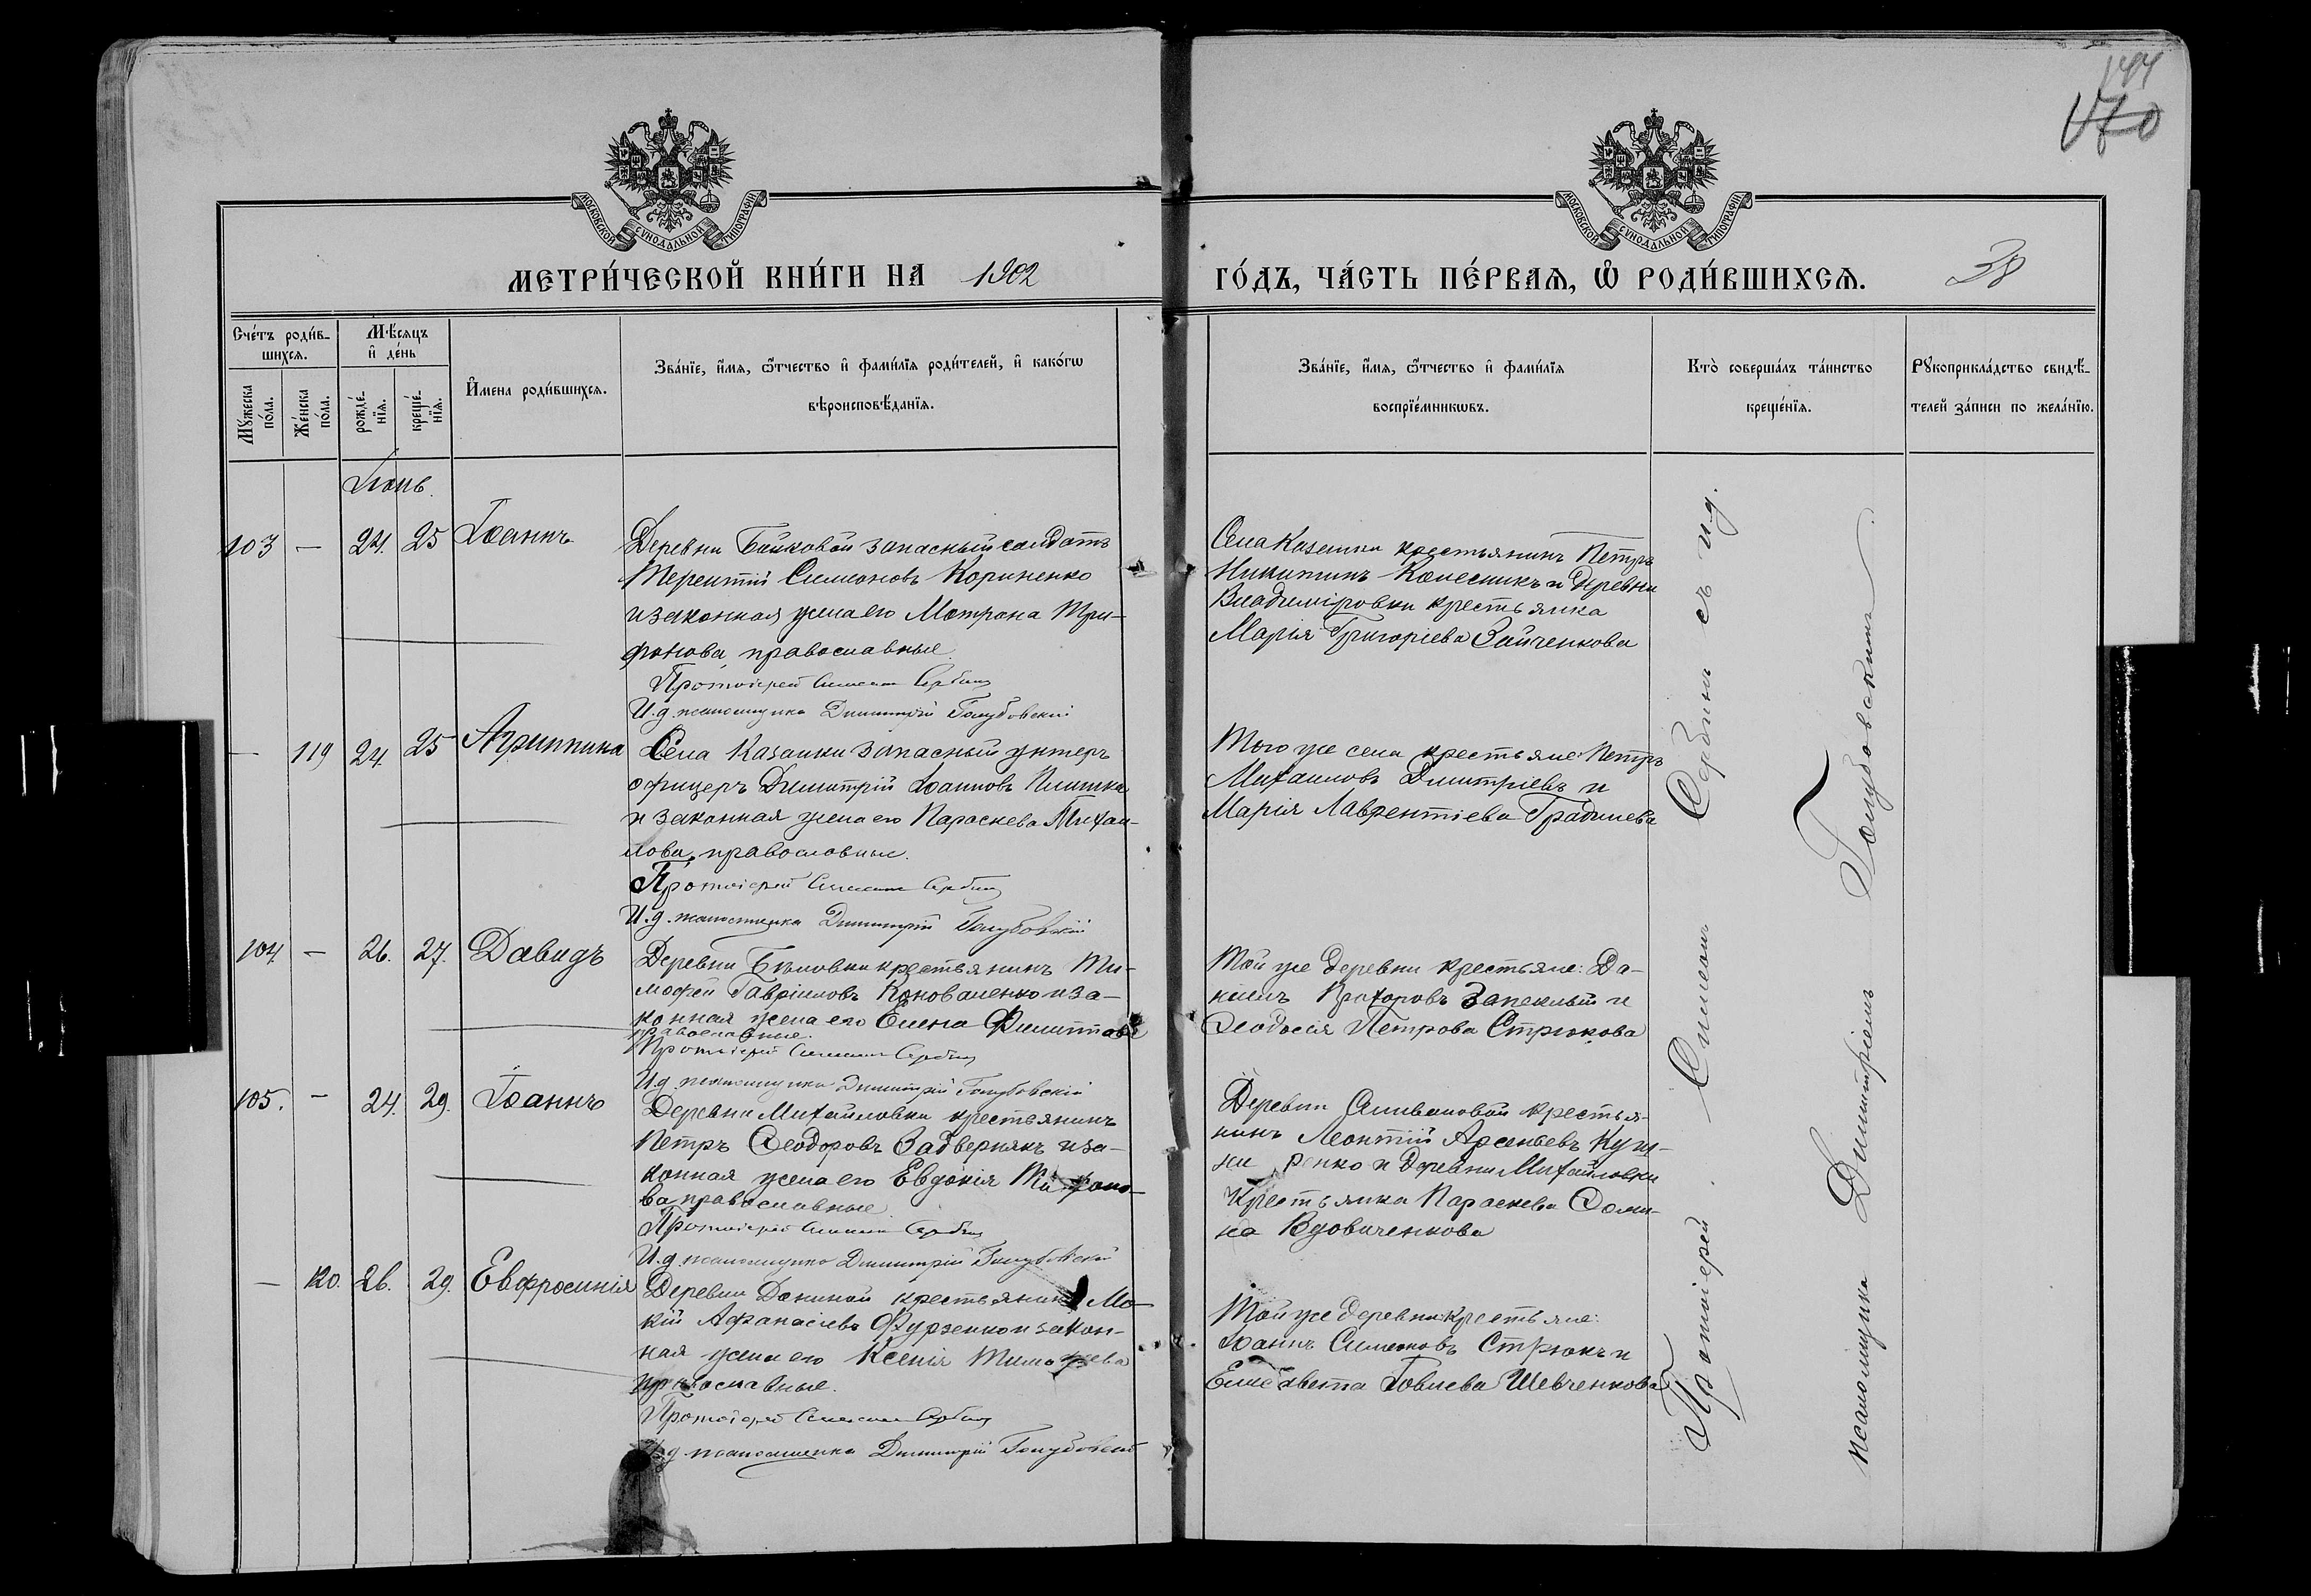 144
170
МОСКОВСКОЙ СУНОДАЛЬНОЙ ТИПОГРАФІИ
МОСКОВСКОЙ СУНОДАЛЬНОЙ ТИПОГРАФІИ
МЕТРИ́ЧЕСКОЙ КНИ́ГИ НА 1902 ГО́ДЪ, ЧА́СТЬ ПЕ́РВАѦ, Ѽ РОДИ́ВШИХСѦ. 38
Сче́тъ роди́в-
шихсѧ.
Мꙋжеска по́ла.
Же́нска по́ла.
Мѣ́сѧцъ
и҆ де́нь
рожде́-
нїѧ.
креще́-
нїѧ.
И҆мена роди́вшихсѧ.
Зва́нїе, и҆́мѧ, ѻ҆́тчество и҆ фами́лїѧ роди́телей, и҆ како́гѡ
вѣроисповѣ́данїѧ.
Зва́нїе, и҆́мѧ, ѻ҆́тчество и҆ фами́лїѧ
воспрїе́мникѡвъ.
Кто̀ соверша́лъ та́инство
креще́нїѧ.
Рꙋкоприкла́дство свидѣ́-
телей за́писи по жела́нїю.
Іюнь.
103 — 24. 25 Іоаннъ
Деревни Байковой запасный солдатъ
Терентій Симеоновъ Корниенко
и законная жена его Матрона Три-
фонова, православные.
Протоіерей Симеонъ Сербинъ
И.д. псаломщика Димитрій Голубовскій
Села Казанки крестьянинъ Петръ
Никитинъ Колесникъ и деревни
Владиміровки крестьянка
Марія Григоріева Зайченкова
— 119 24. 25 Агриппина
Села Казанки запасный унтеръ
офицеръ Димитрій Іоанновъ
и законная жена его Параскева Михаи-
лова, православные.
Протоіерей Симеонъ Сербинъ
И.д. псаломщика Димитрій Голубовскій
Того же села крестьяне: Петръ
Михаиловъ Димитріевъ и
Марія Лаврентіева Градилева
104. — 26. 27. Давидъ
Деревни Бѣловки крестьянинъ Ти-
мофей Гавріиловъ Коноваленко и за-
конная жена его Елена Филиппова
православные.
Протоіерей Симеонъ Сербинъ
И.д. псаломщика Димитрій Голубовскій
Той же деревни крестьяне: Да-
Прохоровъ и
Ѳеодосія Петрова Стрюкова
105. — 24. 29. Іоаннъ
Деревни Михайловки крестьянинъ
Петръ Ѳеодоровъ Задвернякъ и за-
конная жена его Евдокія
ва православные.
Протоіерей Симеонъ Сербинъ
И.д. псаломщика Димитрій Голубовскій
Деревни Селивановой крестья-
нинъ Леонтій Арсеніевъ Куш-
ни ренко и деревни Михайловки
крестьянка Параскева Ѳоми-
на Вдовиченкова
— 120. 26. 29. Евфросинія
Деревни крестьянинъ Мо-
кій Афанасіевъ Фурзенко и закон-
ная жена его Ксенія Тимофеева
православные.
Протоіерей Симеонъ Сербинъ
И.д. псаломщика Димитрій Голубовскій
Той же деревни крестьяне:
Іоаннъ Симеоновъ Стрюкъ и
Елисавета Іовлева Шевченкова
Протоіерей Симеонъ Сербинъ съ и.д.
псаломщика Димитріемъ Голубовскимъ.